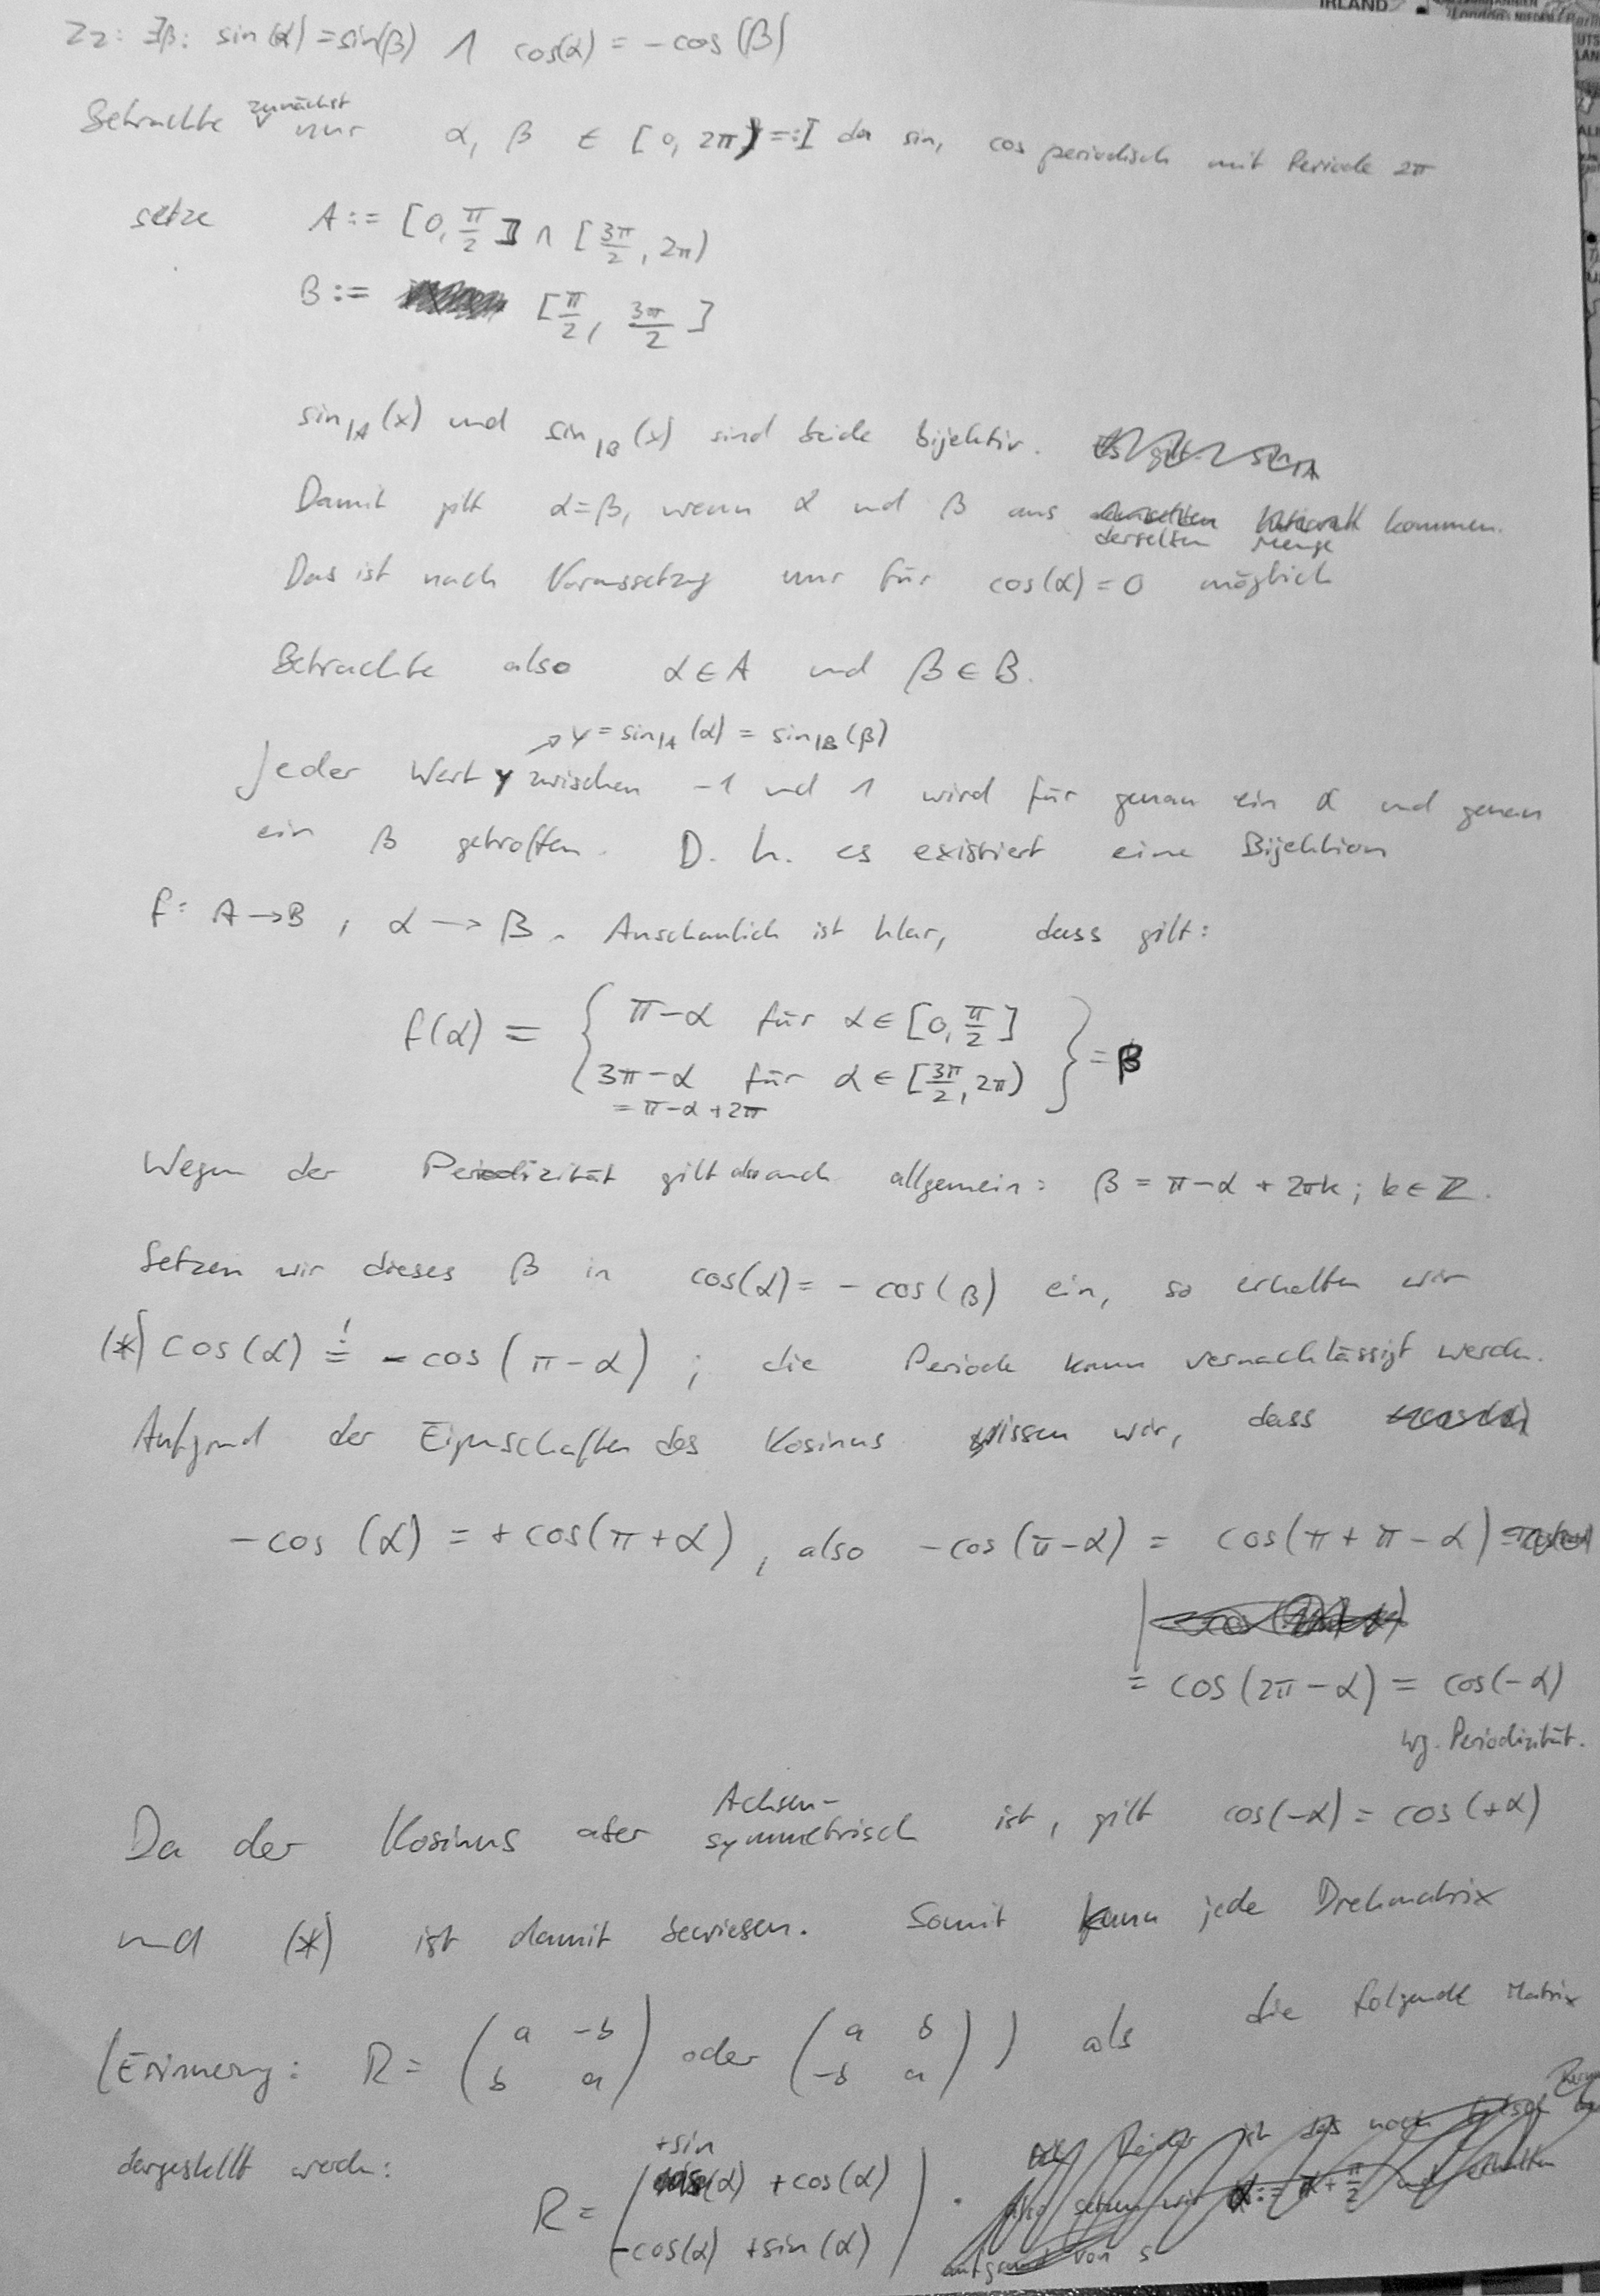 IRLAND
London
Zz: ∃β: sin(α) = sin(β) ∧ cos(α) = -cos(β)
Betrachte zunächst nur α, β ∈ [0, 2π) =: I da sin, cos periodisch mit Periode 2π
setze A := [0, π/2] ∧ [3π/2, 2π)
B := [π/2, 3π/2]
sin|A(x) und sin|B(x) sind beide bijektiv.
Damit gilt α=β, wenn α und β aus derselben Menge kommen.
Das ist nach Voraussetzg nur für cos(α) = 0 möglich
Betrachte also α ∈ A und β ∈ B.
↗ y = sin|A(α) = sin|B(β)
Jeder Wert y zwischen -1 und 1 wird für genau ein α und genau
ein β getroffen. D. h. es existiert eine Bijektion
f: A → B, α → β. Anschaulich ist klar, dass gilt:
f(α) = { π-α für α ∈ [0, π/2]
3π-α für α ∈ [3π/2, 2π) } = β
= π-α+2π
Wegen der Periodizität gilt auch allgemein: β = π-α + 2πk; k ∈ ℤ.
Setzen wir dieses β in cos(α) = -cos(β) ein, so erhalten wir
(*) cos(α) =! -cos(π-α); die Periode kann vernachlässigt werden.
Aufgrund der Eigenschaften des Kosinus wissen wir, dass
-cos(α) = +cos(π+α), also -cos(π-α) = cos(π+π-α)
= cos(2π-α) = cos(-α)
wg. Periodizität.
Da der Kosinus aber Achsen-symmetrisch ist, gilt cos(-α) = cos(+α)
und (*) ist damit bewiesen. Somit kann jede Drehmatrix
(Erinnerung: R = (a -b; b a) oder (a b; -b a)) als die folgende Matrix
dargestellt werden:
R = (+sin(α) +cos(α); -cos(α) +sin(α)).